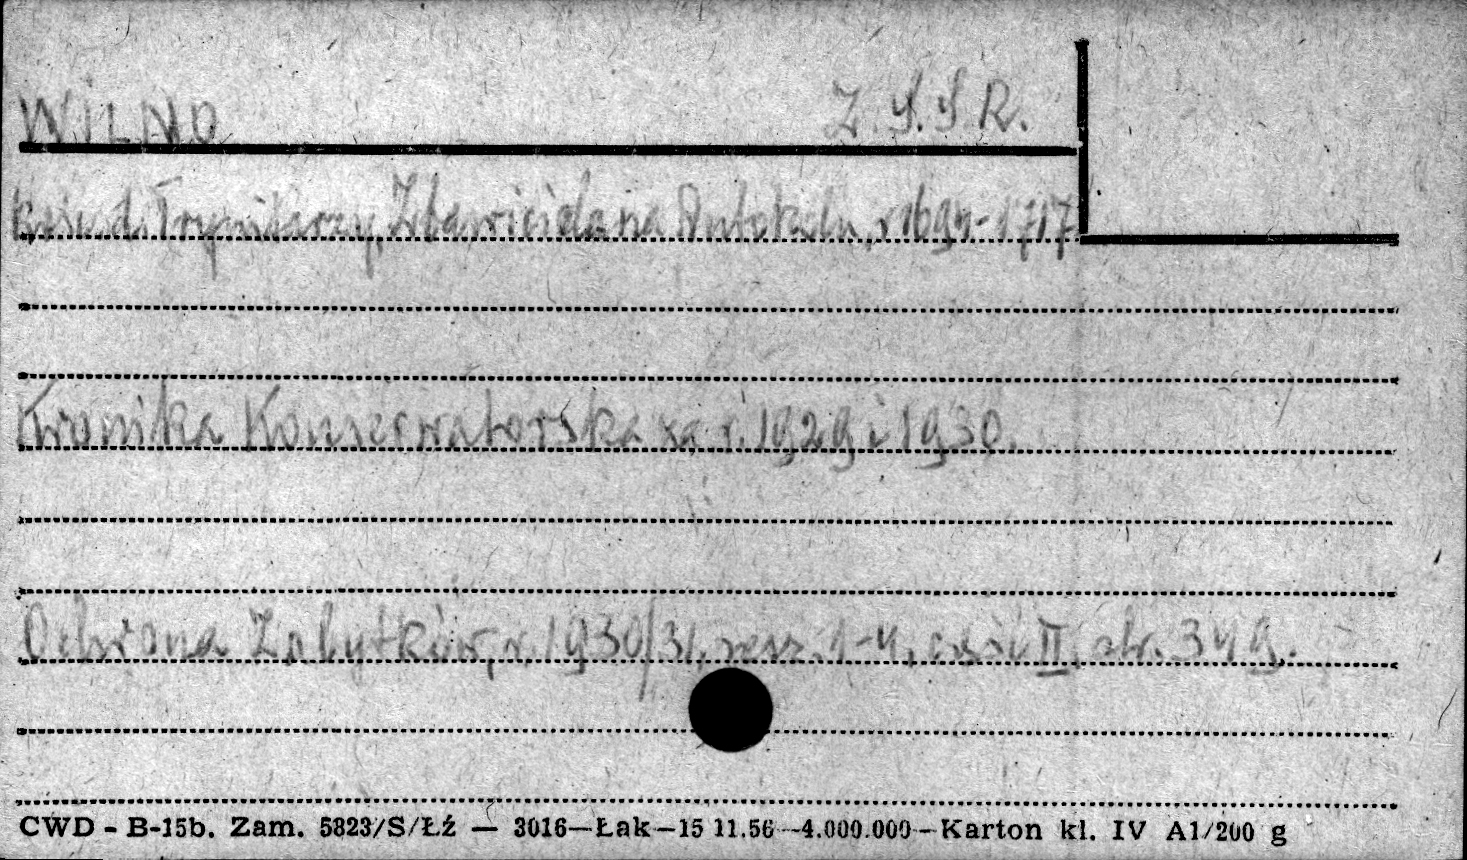 WILNO Z.S.S R.
Kośc. d. Trynitarzy, Zbawiciela na Antokolu, r. 1694-1717
Kronika Konserwatorska za r. 1929 i 1930.
Ochrona Zabytków, r. 1930/31, zesz. 1-4, część II, str. 349.
CWD - B-15b. Zam. 5823/S/Łź — 3016—Łak—15 11.56—4.000.000—Karton kl. IV A1/200 g